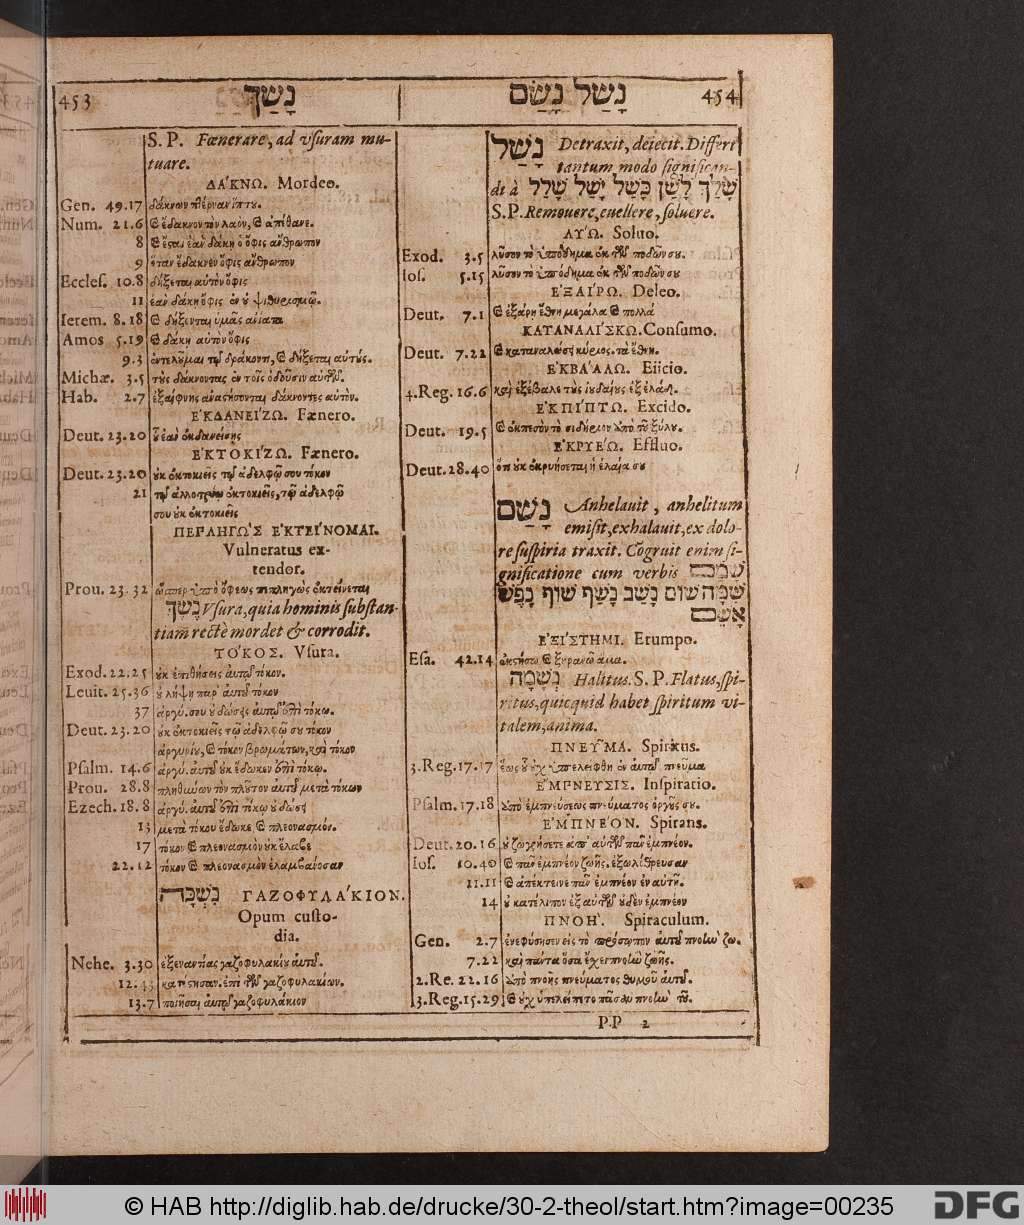 453 נָשַׁךְ
S. P. Fœnerare, ad vſuram mu-
tuare.
ΔΑ'ΚΝΩ. Mordeo.
Gen. 49.17 δάκνων πτέρναν ἵππου.
Num. 21.6 ἔδακνον τὸν λαὸν,
8 ἔςαι ἐὰν δάκῃ ὁ ὄφις ἄνθρωπον
9 ὅταν ἔδακνεν ὄφις ἄνθρωπον
Eccleſ. 10.8 δήξεται αὐτὸν ὄφις
11 ἐαν δάκῃ ὄφις
Ierem. 8.18 δήξονται ὑμᾶς
Amos 5.19 δάκῃ αὐτὸν ὄφις
9.3 δήξεται αὐτούς.
Michæ. 3.5 τοὺς δάκνοντας ἐν τοῖς ὀδοῦσιν αὐτῶν.
Hab. 2.7 ἐξαίφνης ἀναςήσονται δάκνοντες αὐτόν.
Ε'ΚΔΑΝΕΙ'ΖΩ. Fænero.
Deut. 23.20
Ε'ΚΤΟΚΙ'ΖΩ. Fænero.
Deut. 23.20 οὐκ ἐκτοκιεῖς τῷ ἀδελφῷ σου τόκον
21 τῷ ἀλλοτρίῳ ἐκτοκιεῖς, τῷ ἀδελφῷ
σου οὐκ ἐκτοκιεῖς
Ε'ΚΤΕΙ'ΝΟΜΑΙ.
Vulneratus ex-
tendor.
Prou. 23.32 ὥσπερ ὑπὸ ὄφεως πεπληγὼς ἐκτείνεται
נֶשֶׁךְ Vſura, quia hominis ſubſtan-
tiam rectè mordet & corrodit.
ΤΟ'ΚΟΣ. Vſura.
Exod. 22.25 οὐκ ἐπιθήσεις αὐτῷ τόκον.
Leuit. 25.36 οὐ λήψῃ παρ' αὐτοῦ τόκον
37 ἀργύ. σου οὐ δώσεις αὐτῷ ἐπὶ τόκῳ.
Deut. 23.20 οὐκ ἐκτοκιεῖς τῷ ἀδελφῷ σου τόκον
ἀργυρίου, τόκον βρωμάτων, καὶ τόκον
Pſalm. 14.6 ἀργύ. αὐτοῦ οὐκ ἔδωκεν ἐπὶ τόκῳ.
Prou. 28.8 πληθύνων τὸν πλοῦτον αὐτοῦ μετὰ τόκων
Ezech. 18.8 ἀργύ. αὐτοῦ ἐπὶ τόκῳ οὐ δώσει
13 μετὰ τόκου ἔδωκε, πλεονασμόν.
17 τόκον πλεονασμὸν οὐκ ἔλαβε
22.12 τόκον πλεονασμὸν ἐλαμβάνοσαν
נִשְׁכָּה ΓΑΖΟΦΥΛΑ'ΚΙΟΝ.
Opum cuſto-
dia.
Nehe. 3.30 ἐξεναντίας γαζοφυλακίου αὐτοῦ.
12.43 ἐπὶ τῶν γαζοφυλακίων.
13.7 ποιῆσαι αὐτῷ γαζοφυλάκιον
נָשַׁל נָשַׁם 454
נָשַׁל Detraxit, deiecit. Differt
tantum modo ſignifican-
di à שָׁלַךְ לָשַׁן כָּשַׁל יָשַׁל שָׁלַל
S. P. Remouere, euellere, ſoluere.
ΛΥ'Ω. Soluo.
Exod. 3.5 λῦσον τὸ ὑπόδημα ἐκ τῶν ποδῶν σου.
Ioſ. 5.15 λῦσον τὸ ὑπόδημα ἐκ τῶν ποδῶν σου
Ε'ΞΑΙ'ΡΩ. Deleo.
Deut. 7.1 ἐξάρῃ ἔθνη μεγάλα πολλὰ
ΚΑΤΑΝΑΛΙ'ΣΚΩ. Conſumo.
Deut. 7.22 καταναλώσει κύριος. τὰ ἔθνη.
Ε'ΚΒΑ'ΛΛΩ. Eiicio.
4.Reg. 16.6 καὶ ἐξέβαλε τοὺς ἰουδαίους ἐξ
Ε'ΚΠΙ'ΠΤΩ. Excido.
Deut. 19.5 ἐκπεσὸν τὸ σιδήριον ἀπὸ τοῦ ξύλου.
Effluo.
Deut. 28.40 ἐκρυήσεται ἡ ἐλαία σου
נָשַׁם Anhelauit, anhelitum
emiſit, exhalauit, ex dolo-
re ſuſpiria traxit. Cōgruit enim ſi-
gnificatione cum verbis
שׁוּם נָשַׁב נָשַׁף שׁוּף נָפַשׁ
Ε'ΞΙ'ΣΤΗΜΙ. Erumpo.
Eſa. 42.14 ἐκςήσω ξηρανῶ ἅμα.
נְשָׁמָה Halitus. S. P. Flatus, ſpi-
ritus, quicquid habet ſpiritum vi-
talem, anima.
ΠΝΕΥ͂ΜΑ. Spiritus.
3.Reg. 17.17 ἕως οὗ οὐχ ὑπελείφθη ἐν αὐτῷ πνεῦμα
Inſpiratio.
Pſalm. 17.18 ἀπὸ ἐμπνεύσεως πνεύματος ὀργῆς σου.
Ε'ΜΠΝΕ'ΟΝ. Spirans.
Deut. 20.16 οὐ ζωγρήσετε ἀπ' αὐτῶν πᾶν ἐμπνέον.
Ioſ. 10.40 πᾶν ἐμπνέον ζωῆς. ἐξωλόθρευσαν
11.11 ἀπέκτεινε πᾶν ἐμπνέον ἐν αὐτῇ.
14 οὐ κατέλιπον ἐξ αὐτῶν οὐδὲν ἐμπνέον
ΠΝΟΗ'. Spiraculum.
Gen. 2.7 ἐνεφύσησεν εἰς τὸ πρόσωπον αὐτοῦ πνοὴν ζω.
7.22 καὶ πάντα ὅσα ἔχει πνοὴν ζωῆς.
2.Re. 22.16 ἀπὸ πνοῆς πνεύματος θυμοῦ αὐτοῦ.
3.Reg. 15.29 οὐχ ὑπελείπετο πᾶσαν πνοὴν τοῦ.
PP 2
© HAB http://diglib.hab.de/drucke/30-2-theol/start.htm?image=00235
DFG